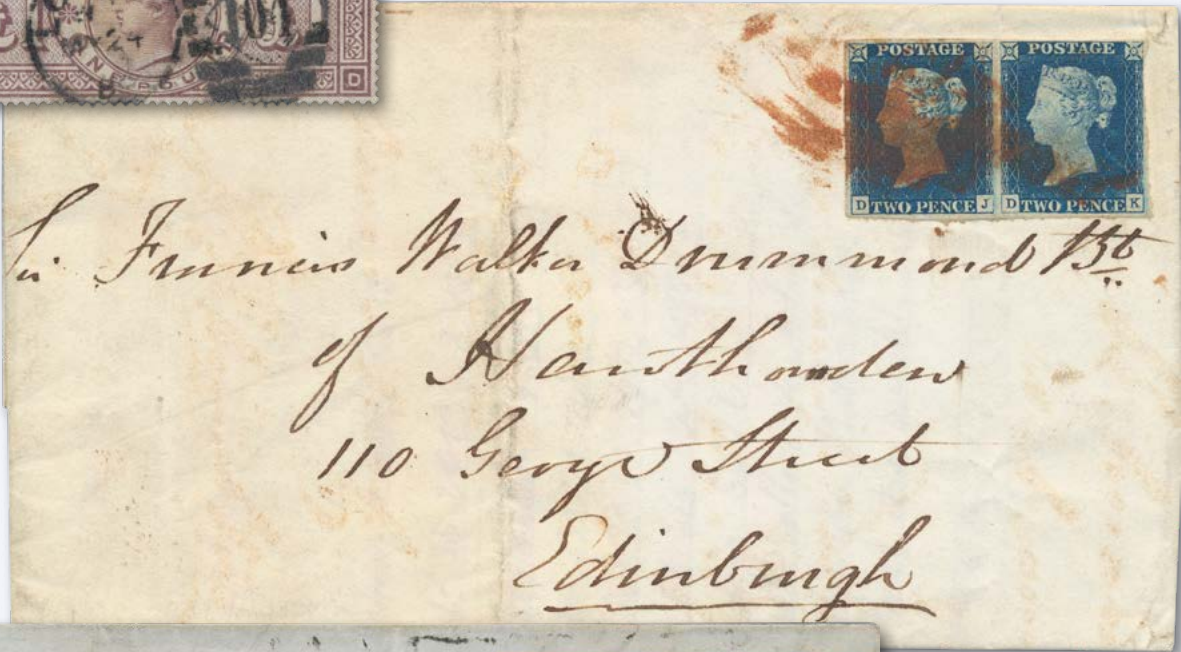 101
24
POSTAGE POSTAGE
D TWO PENCE J D TWO PENCE K
Sir Francis Walker Drummond Bt
of Hawthornden
110 George Street
Edinburgh